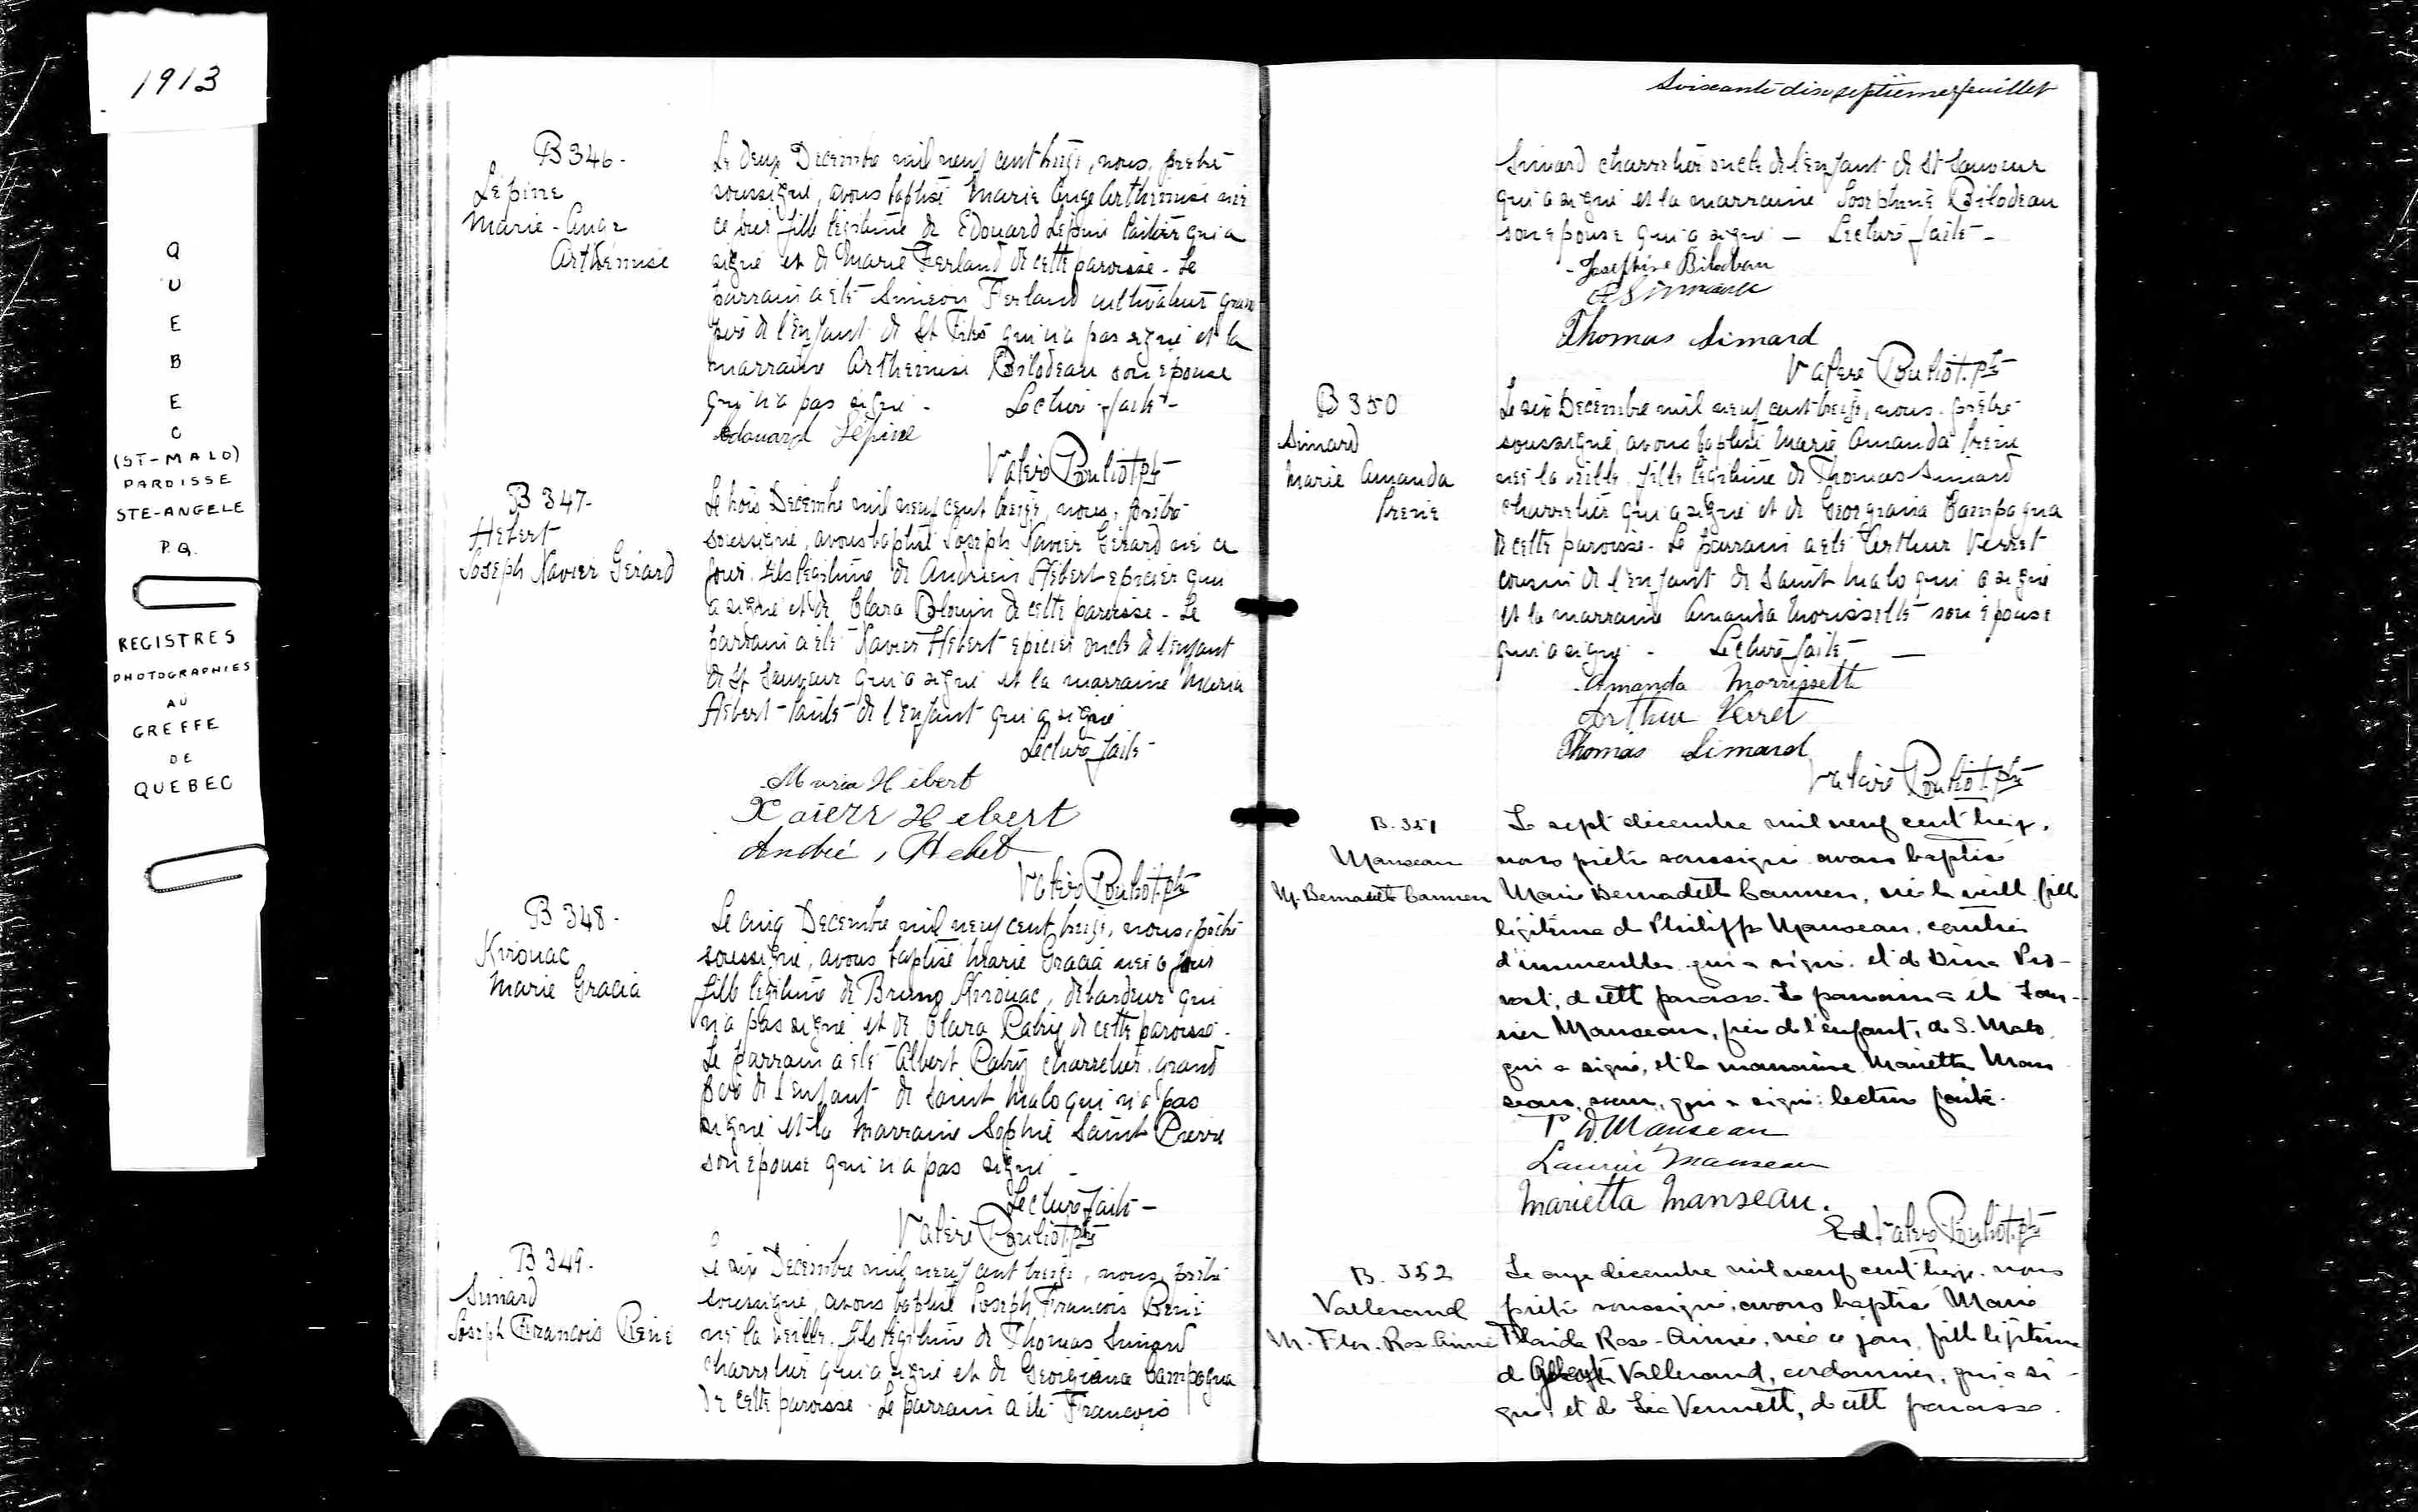 1913
QUEBEC
(ST-MALO)
PAROISSE
STE-ANGELE
P.Q.
REGISTRES
PHOTOGRAPHIES
AU
GREFFE
DE
QUEBEC
B 346-
Lépine
Marie-Ange
Arthémise
Le deux Decembre mil neuf cent treize, nous, prêtre
soussigné, avons baptisé Marie Ange Arthemise née
ce jour fille légitime de Edouard Lépine laitier qui a
signé et de Marie Ferland de cette paroisse - Le
parrain a été Simeon Ferland cultivateur grand
père de l'enfant de St Tite qui n'a pas signé et la
marraine Arthemise Bilodeau son épouse
qui n'a pas signé - Lecture faite -
Edouard Lépine
Valere Pouliot Ptr
B 347-
Hebert
Joseph Xavier Gérard
Le trois Decembre mil neuf cent treize, nous, prêtre
soussigné, avons baptisé Joseph Xavier Gérard né ce
jour. Fils légitime de Andrien Hébert epicier qui
a signé et de Clara Blouin de cette paroisse - Le
parrain a été Xavier Hébert epicier oncle de l'enfant
de St Sauveur qui a signé et la marraine Maria
Hébert tante de l'enfant qui a signé
Lecture faite -
Maria Hébert
Xavier Hebert
André, Hebert
Valere Pouliot Ptr
B 348-
Kirouac
Marie Gracia
Le cinq Decembre mil neuf cent treize, nous, prêtre
soussigné, avons baptisé Marie Gracia née ce jour
fille légitime de Bruno Kirouac, débardeur qui
n'a pas signé et de Clara Patry de cette paroisse -
Le parrain a été Albert Patry charretier grand
père de l'enfant de Saint Malo qui n'a pas
signé et la Marraine Sophie Saint Pierre
son épouse qui n'a pas signé -
Lecture faite -
Valere Pouliot Ptr
B 349-
Simard
Joseph François René
Le six Decembre mil neuf cent treize, nous, prêtre
soussigné, avons baptisé Joseph François René
né la veille. Fils légitime de Thomas Simard
charretier qui a signé et de Georgiana Campagna
de cette paroisse. Le parrain a été François
Soixante dix septième feuillet
Simard charretier oncle de l'enfant de St Sauveur
qui a signé et la marraine Josephine Bilodeau
son épouse qui a signé - Lecture faite -
Josephine Bilodeau
Thomas Simard
Valere Pouliot. Ptr
B 350
Simard
Marie Amanda
Irene
Le six Decembre mil neuf cent treize, nous, prêtre
soussigné, avons baptisé Marie Amanda Irene
née la veille fille légitime de Thomas Simard
charretier qui a signé et de Georgiana Campagna
de cette paroisse - Le parrain a été Arthur Verret
cousin de l'enfant de Saint Malo qui a signé
et la marraine Amanda Morissette son épouse
qui a signé - Lecture faite -
Amanda Morrissette
Arthur Verret
Thomas Simard
Valere Pouliot. Ptr
B. 351
Manseau
M. Bernadette Carmen
Le sept décembre mil neuf cent treize,
nous prêtre soussigné avons baptisé
Marie Bernadette Carmen, née la veille fille
légitime de Philippe Manseau, courtier
d'immeubles qui a signé et de Dina Pro-
vost, de cette paroisse. Le parrain a été Lau-
rier Manseau, frère de l'enfant, de S. Malo
qui a signé, et la marraine Marietta Man
seau, soeur, qui a signé. lecture faite.
P W. Manseau
Laurier Manseau
Marietta Manseau.
Valere Pouliot. Ptr
B. 352
Vallerand
M. Flor. Rose Aimée
Le onze décembre mil neuf cent treize. nous
prêtre soussigné, avons baptisé Marie
Florida Rose-Aimée, née ce jour, fille légitime
de Vallerand, cordonnier, qui a si-
gné, et de Léa Vermette, de cette paroisse.